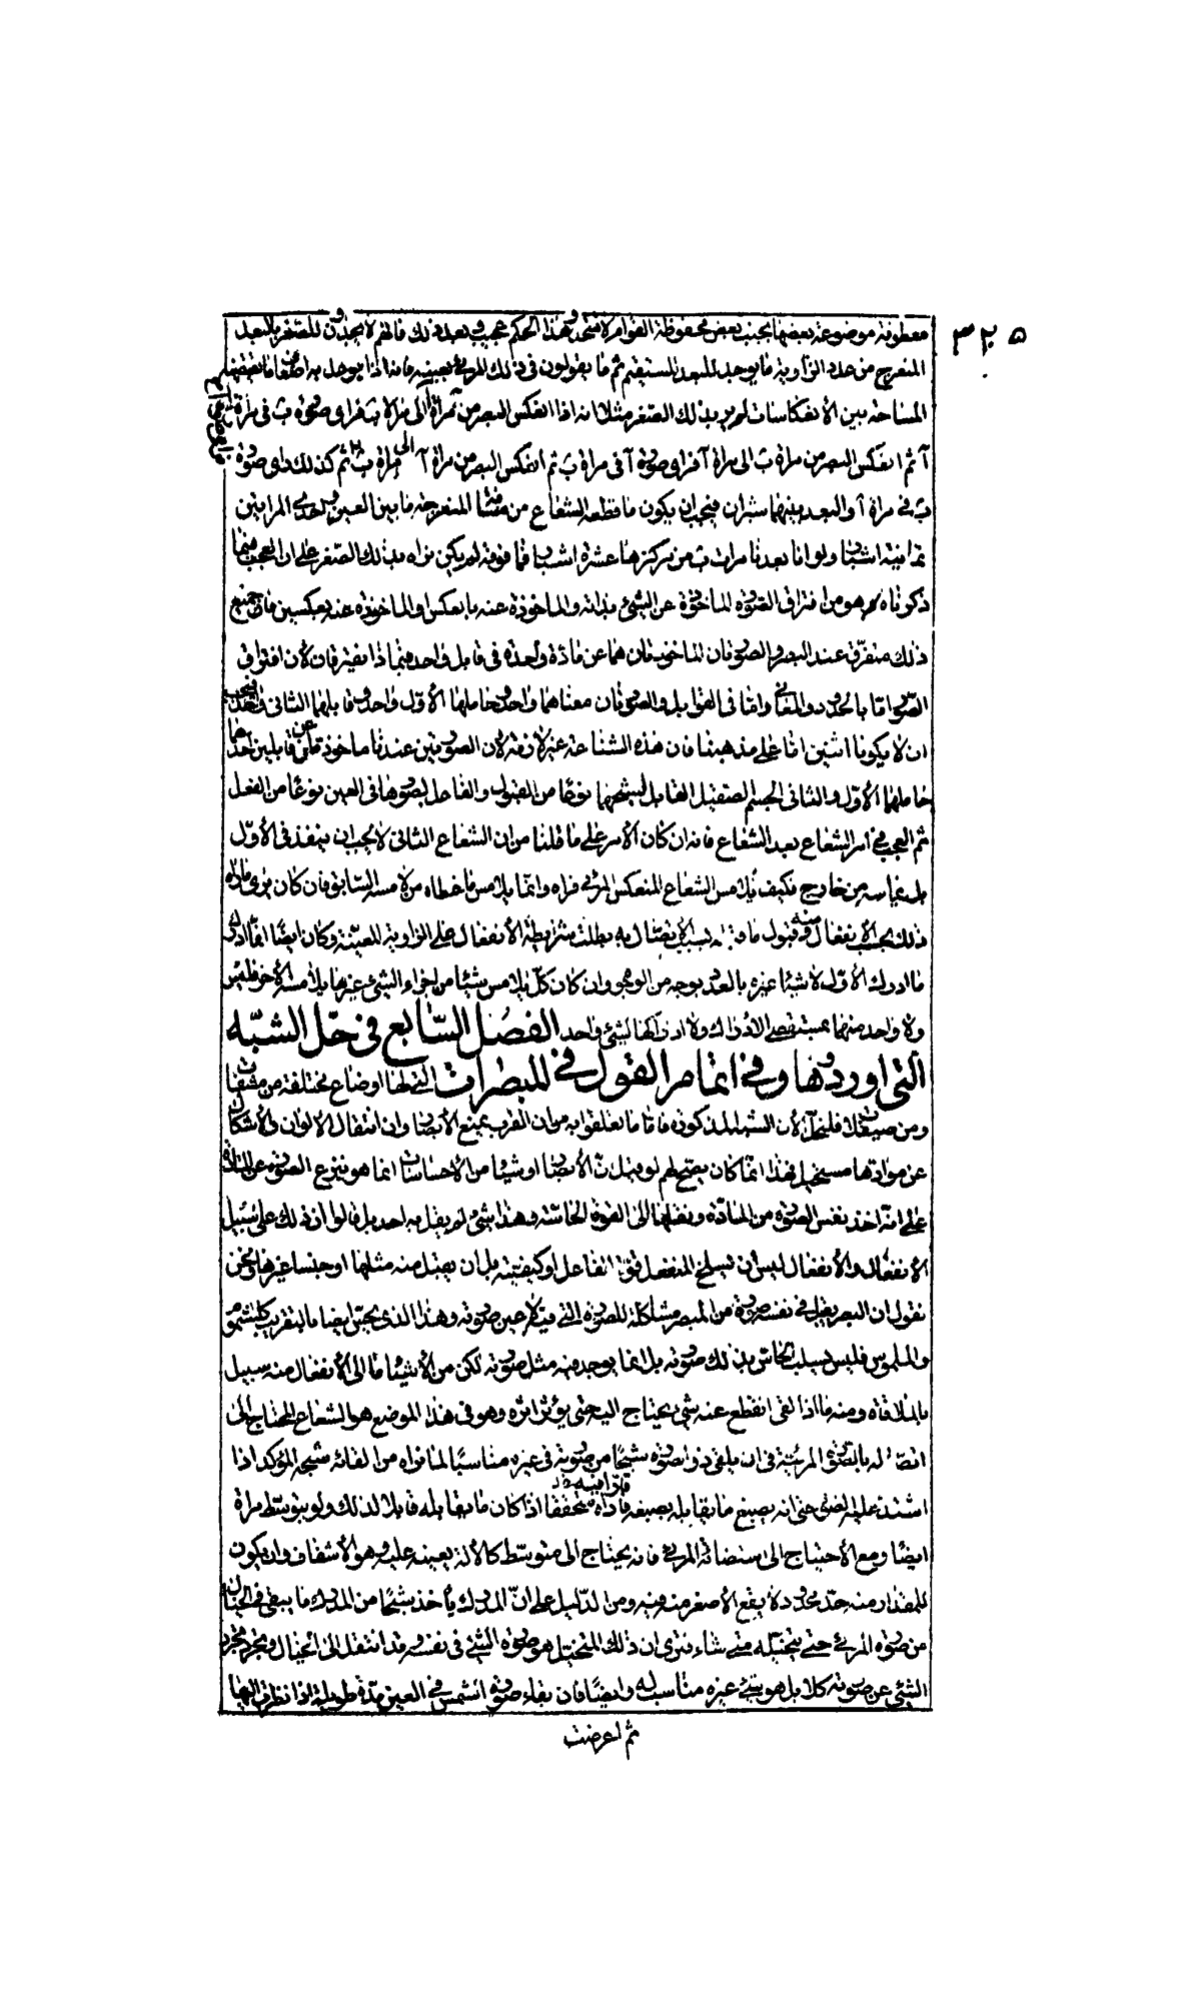 ٣٢٥
معطوفة موضوعة بعضها بجنب بعض محفوظة القوام لا متحد وهذا الحكم عجيب وبعد ذلك فانهم لا يجدون للصغر بالبعد
المنعرج من عدد الزاوية ما يوجد للبعد المستقيم ثم ما يقولون فى ذلك المرئى بعينه فانه اذا يوجد به اضعاف ما تقتضيه
المساحة بين الانعكاسات لم ير بذلك الصغر مثلا انه اذا انعكس البصر من مرآة آ الى مرآة ب فراى صورة ب فى مرآة
آ ثم انعكس البصر من مرآة ب الى مرآة آ فراى صورة آ فى مرآة ب ثم انعكس البصر من مرآة آ الى مرآة ب ثم كذلك راى صورة
ب فى مرآة آ والبعد بينهما شبران فيجب ان يكون ما قطعه الشعاع من مسافته المنعرجة ما بين العين واحدى المرآتين
ثمانية اشبار ولو انا بعدنا مرآت ب من مركزها عشرة اشبار فما فوقه لم يكن نراه بذلك الصغر على ان العجب مما
ذكرناه هو من افتراق الصورة الماخوذة عن الشئ بذاته والماخوذة عنه بانعكاس والماخوذة عنه بعكسين فان جميع
ذلك متفرق عند البصر والصورتان الماخوذتان هما عن مادة واحدة فى قابل واحد فبماذا يفترقان لان افتراق
الصور اما بالحدود والمعانى واما فى القوابل والصورتان معناهما واحد وحاملهما الاول واحد وقابلهما الثانى واحد فيجب
ان لا يكونا اثنين اما على مذهبنا فان هذه الشناعة غير لازمة لان الصورتين عندنا ماخوذة عن قابلين احدهما
حاملهما الاول والثانى الجسم الصقيل القابل لشبحهما نوعا من القبول والفاعل لصورتهما فى العين نوعا من الفعل
ثم العجب فى امر الشعاع بعد الشعاع فانه ان كان الامر على ما قلنا من ان الشعاع الثانى لا يجب ان ينفذ فى الاول
بل يماسه من خارج فكيف يلامس الشعاع المنعكس المرئى فراه وانما يلامس ما غطاه من لامسه السابق فان كان يرى ما راه
ذلك بحسب الانفعال منه وقبول ما قبله بسبيل الاتصال به بطلت شريطة الانفعال على الزاوية المعينة وكان ايضا انما ادرك
ما ادرك الاول لا شيئا غيره بالعدد بوجه من الوجوه وان كان كل يلامس شيئا من اجزاء الشئ غير ما يلامسه الاخر فليس
ولا واحد منهما بمستقصى الادراك ولا ادراكهما لشئ واحد الفصل السابع فى حل الشبه
التى اوردوها وفى اتمام القول فى المبصرات التى لها اوضاع مختلفة من مشفات
ومن صقيلات فلنحل الان الشبه المذكورة فاما ما تعلقوا به من ان القرب يمنع الابصار وان انتقال الالوان والاشكال
عن موادها مستحيل فهذا انما كان يصح لهم لو قيل ان الابصار او شيئا من الاحساسات انما هو بنزع الصورة عن المادة
على انه اخذ نفس الصورة من المادة ونقلها الى القوة الحاسة وهذا شئ لم يقل به احد بل قالوا ان ذلك على سبيل
الانفعال والانفعال ليس ان يسلخ المنفعل قوة الفاعل او كيفيته بل ان يقبل منه مثلها او جنسا غيرها ونحن
نقول ان البصر يقبل فى نفسه صورة من المبصر مشاكلة للصورة التى فيه لا عين صورته وهذا الذى يحس ايضا بالتقريب كالمشموم
والملموس فليس يسلب الحاس بذلك صورته بل انما يوجد فيه مثل صورته لكن من الاشياء ما الى الانفعال منه سبيل
بالملاقاة ومنه ما اذا لقى انقطع عنه شئ يحتاج اليه حتى يؤثر اثره وهو فى هذا الموضع هو الشعاع المحتاج الى
اتصاله بالصورة المرئية فى ان يلقى ذو الصورة شبحا من صورته فى غيره مناسبا لما نراه من القائه شبحه المؤكد اذا
اشتد عليه الضوء حتى انه يصبغ ما يقابله بصبغه فازاه متحققا اذا كان ما يقابله قابلا لذلك ولو بتوسط مرآة
ايضا ومع الاحتياج الى استضائة المرئى فانه يحتاج الى متوسط كالالة يعينه عليه وهو الاشفاف وان يكون
للمقدار منه حد محدود لا يقع الاصغر منه فيه ومن الدليل على ان المدرك ياخذ شبحا من المدرك ما يبقى فى الخيال
من صورة المرئى حتى يتخيله متى شاء فترى ان ذلك المتخيل هو صورة الشئ فى نفسه وقد انتقل الى الخيال وتجرد
الشئ عن صورته كلا بل هو شئ غيره مناسب له وايضا فان بقاء صورة الشمس فى العين مدة طويلة اذا نظرت اليها
ثم اعرضت